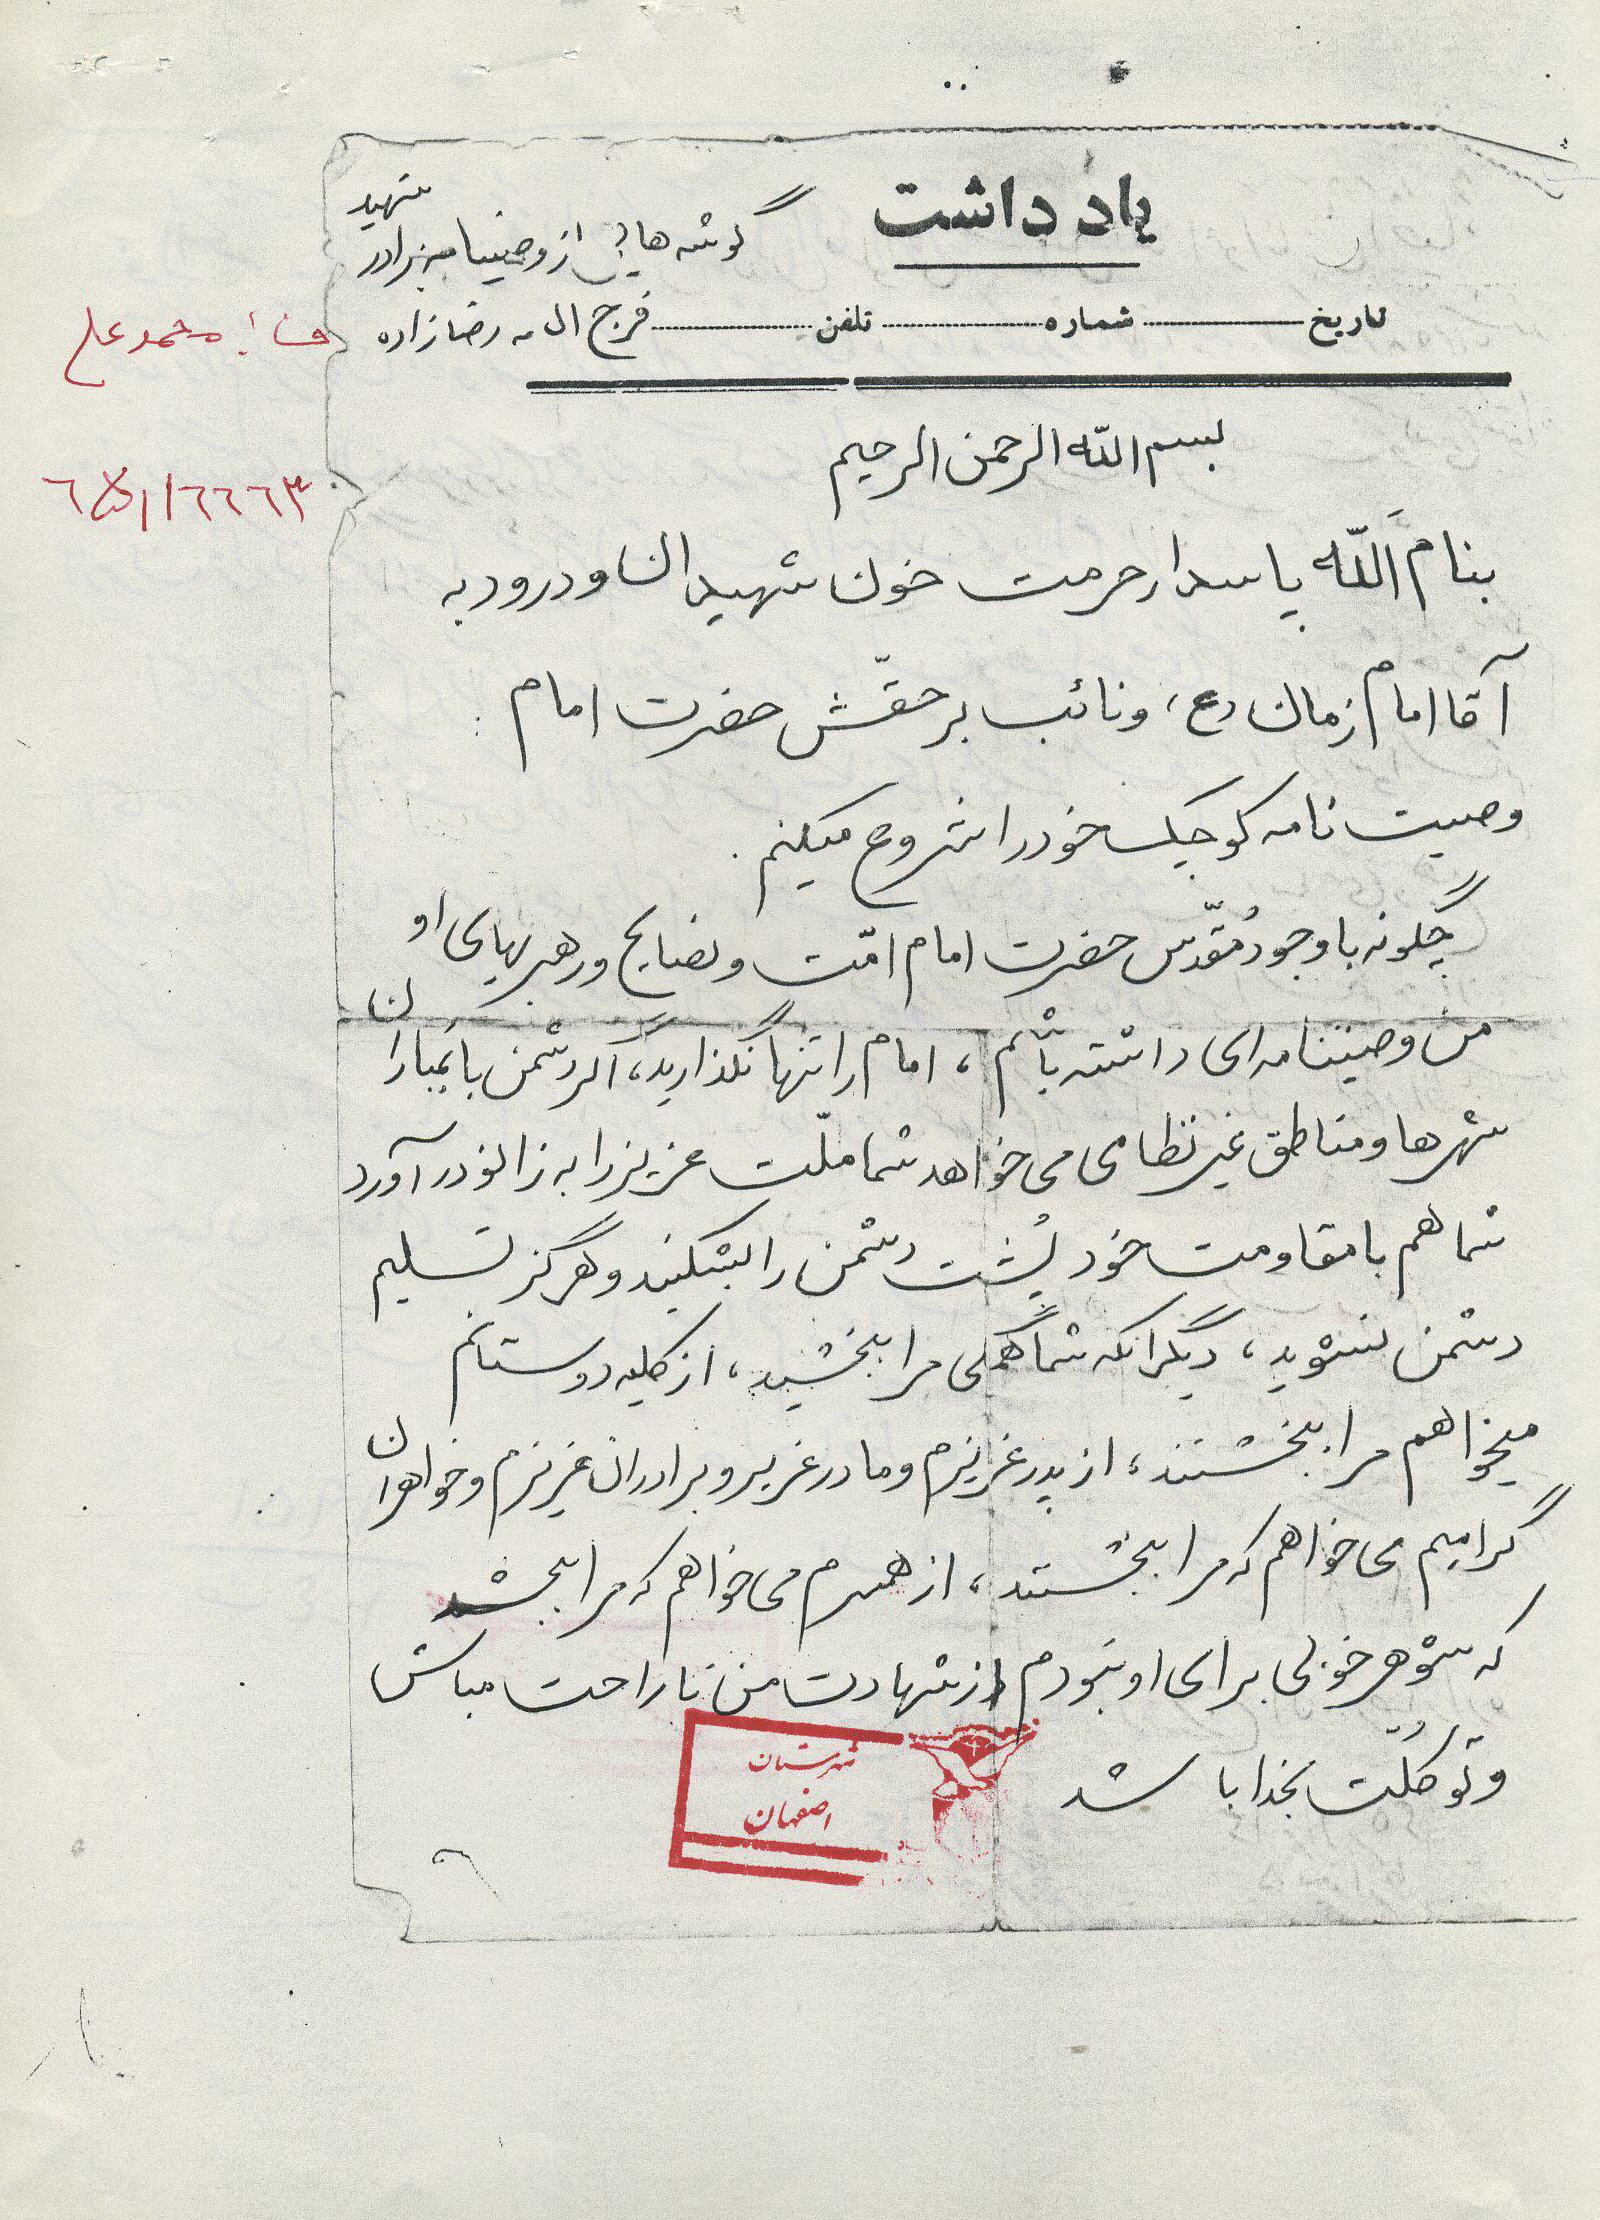 یاد داشت
گوشه هایی از وصیتنامه برادر شهید
تاریخ شماره تلفن فرج اله رضازاده
محمدعلی
بسم الله الرحمن الرحیم
بنام الله پاسدار حرمت خون شهیدان و درود به
آقا امام زمان (ع) و نائب بر حقّش حضرت امام
وصیت نامه کوچک خود را شروع میکنم.
چگونه با وجود مُقدّس حضرت امام امّت و نصایح و رهبریهای او
من وصیتنامه ای داشته باشم، امام را تنها نگذارید، اگر دشمن با بمباران
شهرها و مناطق غیر نظامی می خواهد شما ملّت عزیز را به زانو در آورد
شما هم با مقاومت خود پُشت دشمن را بشکنید و هرگز تسلیم
دشمن نشوید، دیگر انکه شما همگی مرا ببخشید، از کلیه دوستانم
میخواهم مرا ببخشند، از پدر عزیزم و مادر عزیز و برادران عزیزم و خواهران
گرامیم می خواهم که مرا ببخشند، از همسرم می خواهم که مرا ببخشد
که شوهر خوبی برای او نبودم از شهادت من ناراحت مباش
و توکلّت بخدا باشد
شهرستان
اصفهان